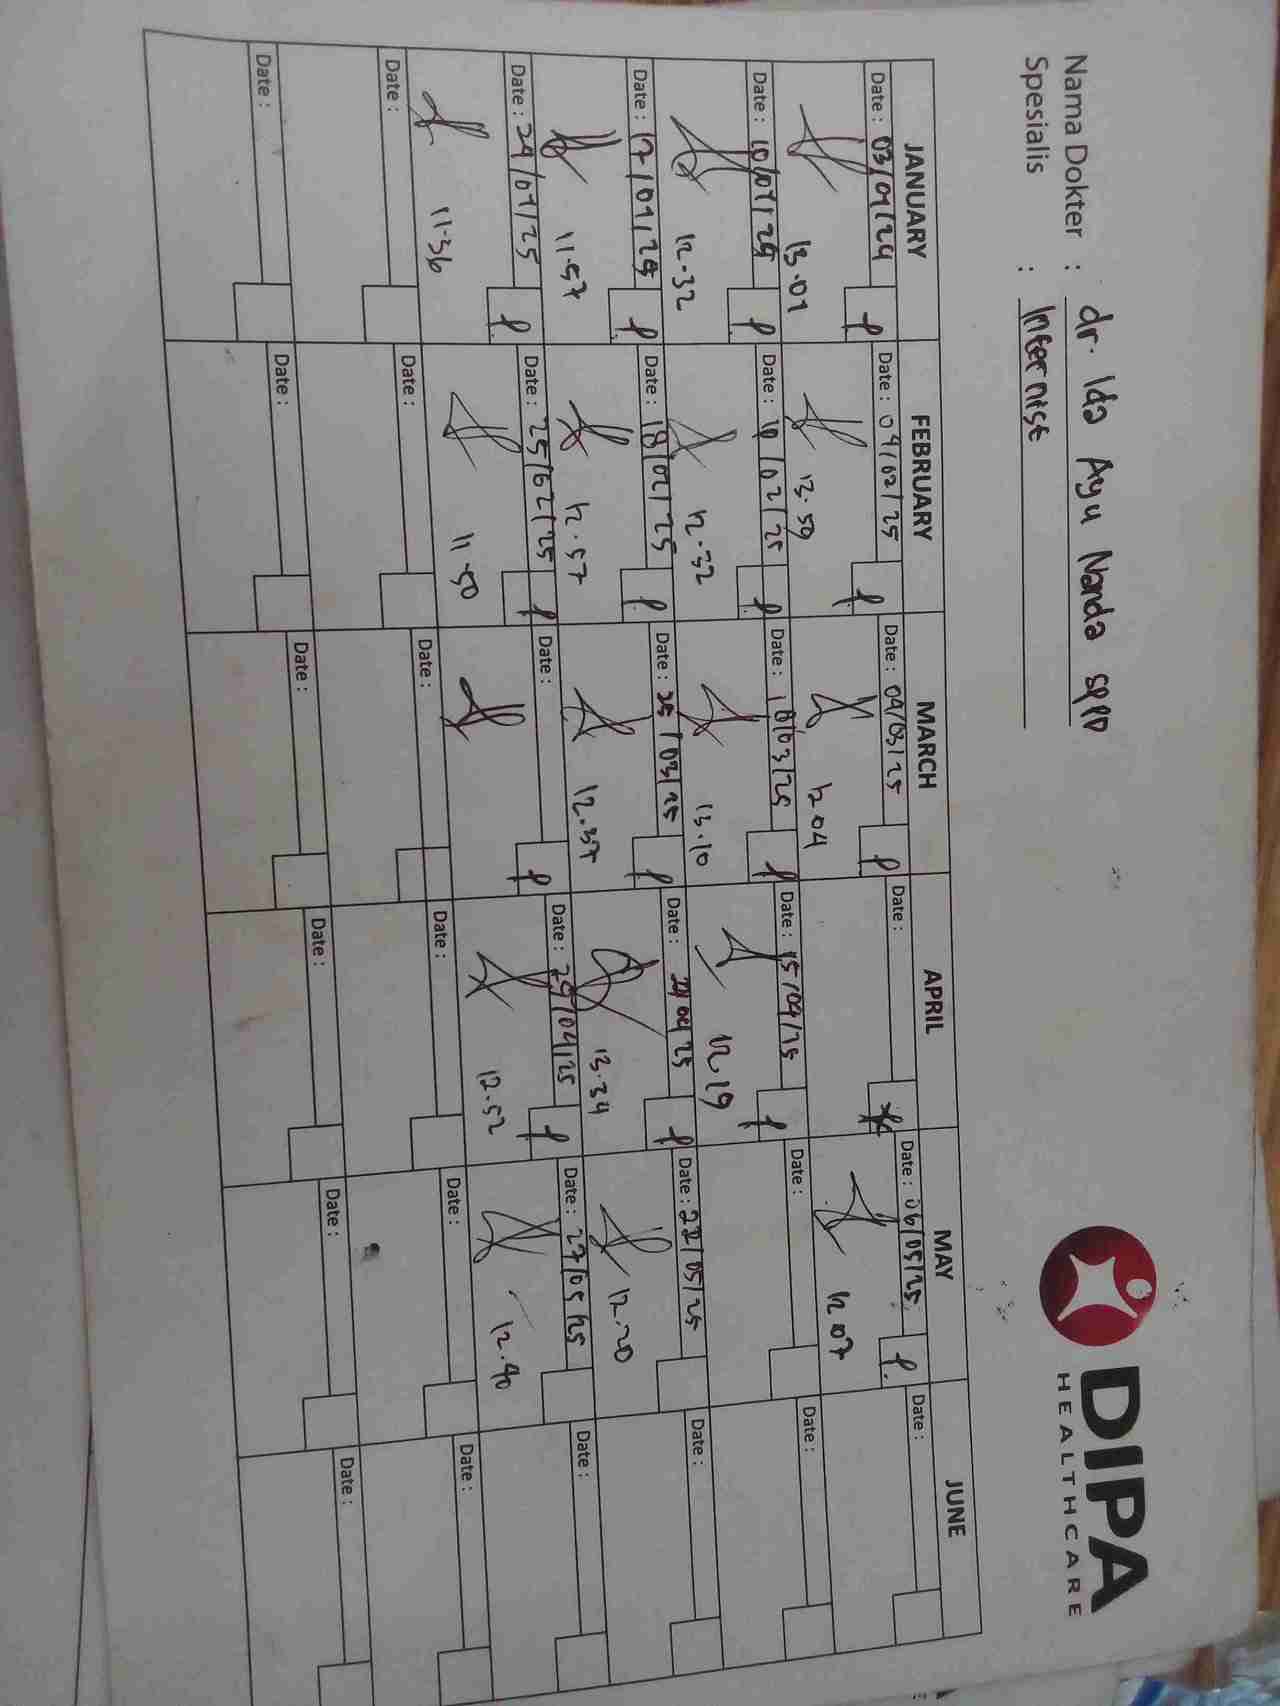 Nama Dokter : dr. Ida Ayu Nanda SPPD
Spesialis : Internist
DIPA
HEALTHCARE
JANUARY FEBRUARY MARCH APRIL MAY JUNE
Date : 03/01/24 Date : 04/02/25 Date : 04/03/25 Date : Date : 06/05/25 Date :
13.01 13.59 12.04 12.07
Date : 10/01/25 Date : 10/02/25 Date : 18/03/25 Date : 15/04/25 Date : Date :
12.32 12.32 13.10 12.19
Date : 17/01/25 Date : 18/02/25 Date : 25/03/25 Date : 21/04/25 Date : 22/05/25 Date :
11.57 12.57 12.37 13.34 12.20
Date : 24/01/25 Date : 25/02/25 Date : Date : 29/04/25 Date : 27/05/25 Date :
11.36 11.50 12.52 12.40
Date : Date : Date : Date : Date : Date :
Date : Date : Date : Date : Date : Date :